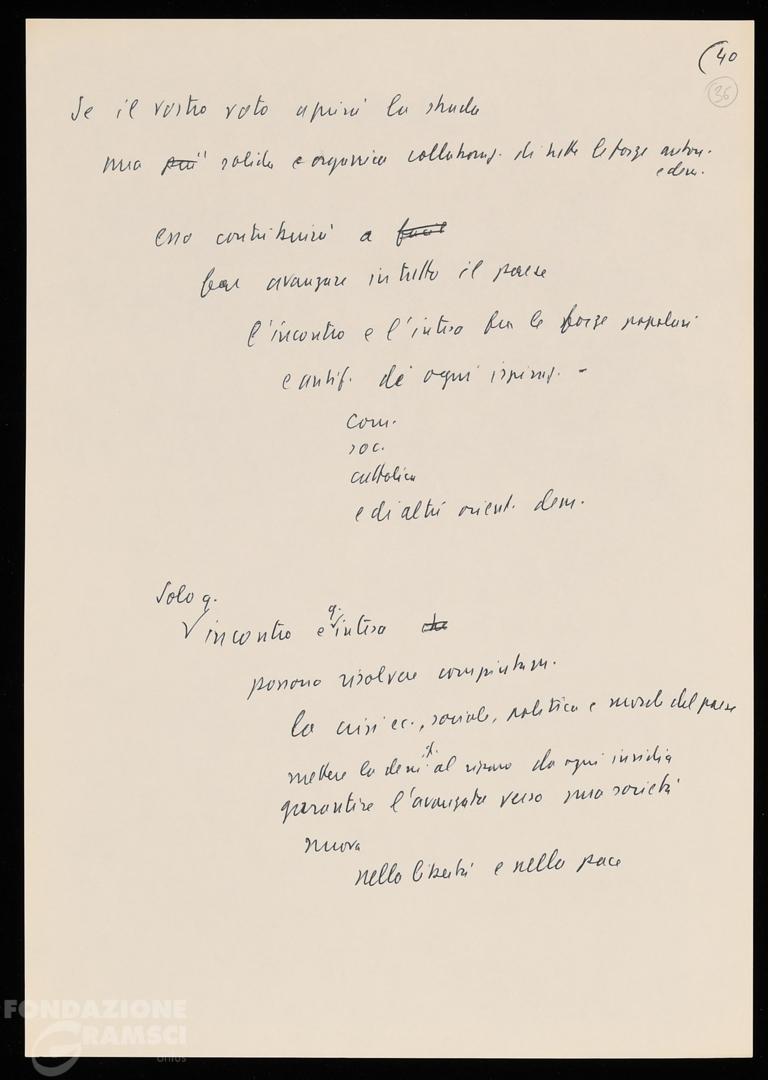 (40
36
Se il vostro voto aprirà la strada
una più solida e organica collaboraz. di tutte le forze auton.
e dem.
esso contribuirà a facil
far avanzare in tutto il paese
l'incontro e l'intesa fra le forze popolari
e antif. di ogni ispiraz. -
com.
soc.
cattolica
e di altri orient. dem.
Solo q.
incontro e q. intesa che
possono risolvere compiutam.
la crisi ec., sociale, politica e morale del paese
mettere la dem. it. al riparo da ogni insidia
garantire l'avanzata verso una società
nuova
nella libertà e nella pace
FONDAZIONE
GRAMSCI
onlus